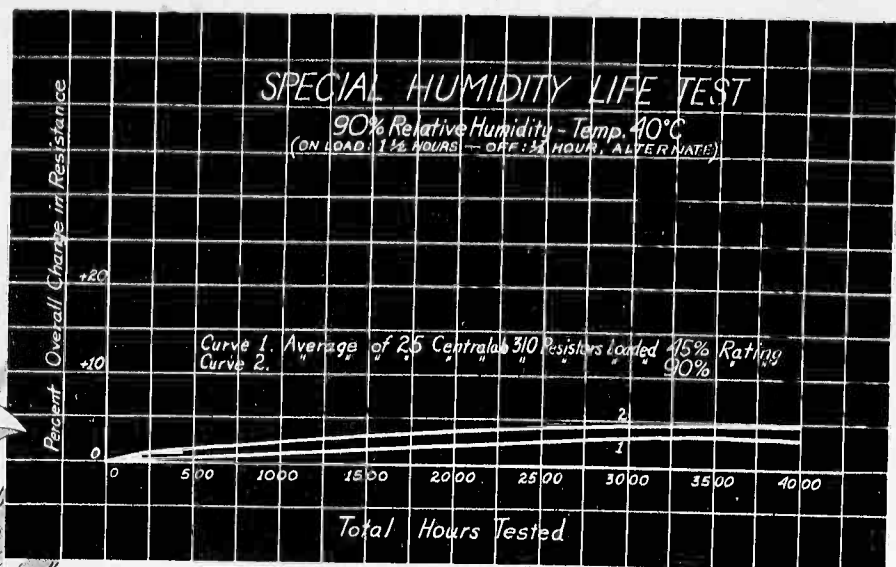 SPECIAL HUMIDITY LIFE TEST
90% Relative Humidity - Temp. 40°C
(ON LOAD: 1½ HOURS — OFF: ½ HOUR, ALTERNATE)
Percent Overall Change in Resistance
+20
Curve 1. Average of 25 Centralab 310 Resistors Loaded 45% Rating
Curve 2. " " " " " " " " 90% " "
+10
2
1
0
0 500 1000 1500 2000 2500 3000 3500 4000
Total Hours Tested